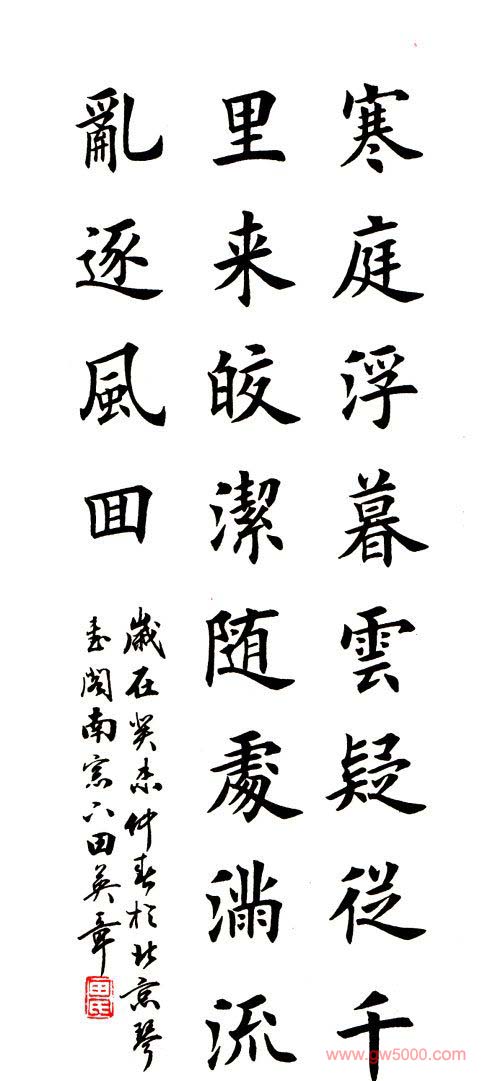 寒庭浮暮雲疑從千
里来皎潔随處滿流
亂逐風回
歲在癸未仲春於北京琴
書閣南窓下田英章
田氏
www.gw5000.com